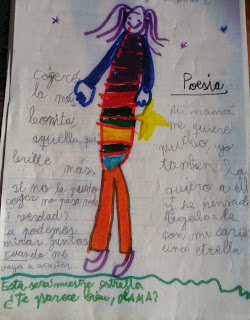 Poesía
Mi mamá
me quiere
mucho yo
tambien la
quiero a
y he pensado
Regalarle
con mi cariñ
una etrella
Cógeré
la más
bonita
aquella que
brille
más,
si no la puedo
coger no pasa nada
verdad?
la podemos
mirar juntos
cuando me
vaya a acostar.
Esta será nuestra estrella
¿Te parece bien, MAMA?